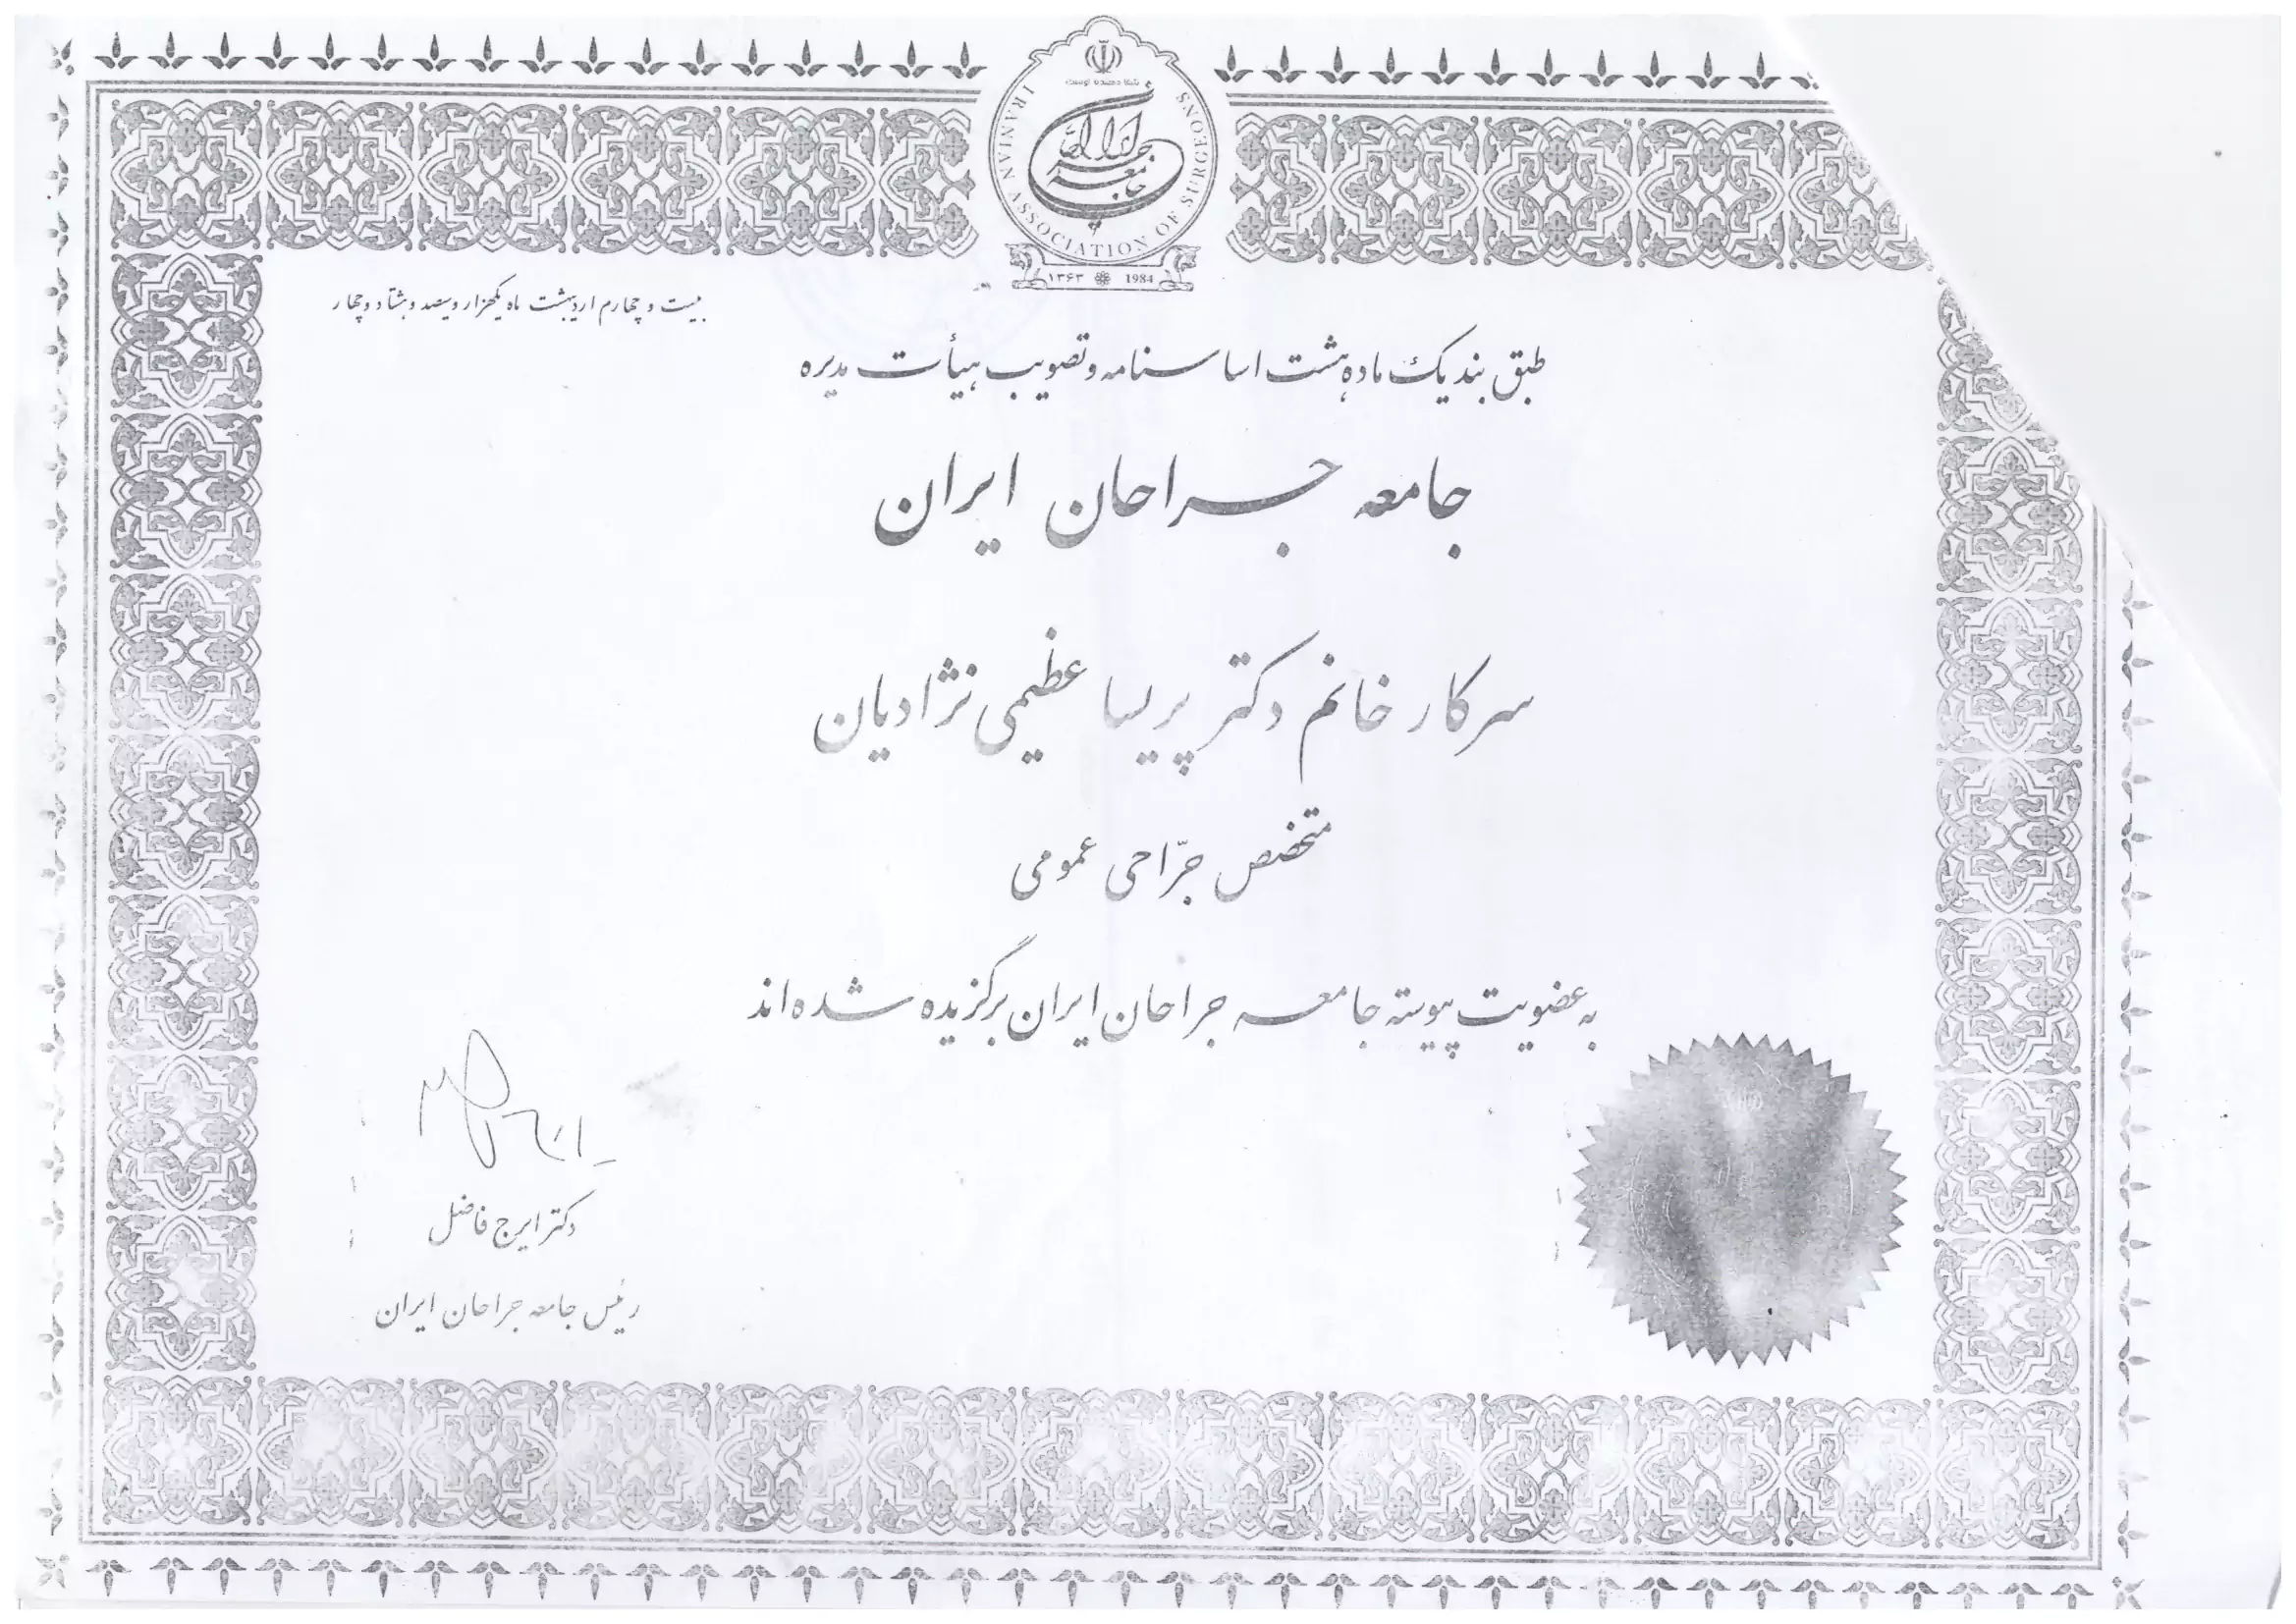 IRANIAN ASSOCIATION OF SURGEONS
جامعه جراحان ایران
۱۳۶۳ 1984
بیست و چهارم اردیبهشت ماه یکهزار و سیصد و هشتاد و چهار
طبق بند یک ماده هشت اساسنامه و تصویب هیأت مدیره
جامعه جراحان ایران
سرکار خانم دکتر پریسا عظیمی نژادیان
متخصص جرّاحی عمومی
به عضویت پیوسته جامعه جراحان ایران برگزیده شده اند
دکتر ایرج فاضل
رئیس جامعه جراحان ایران